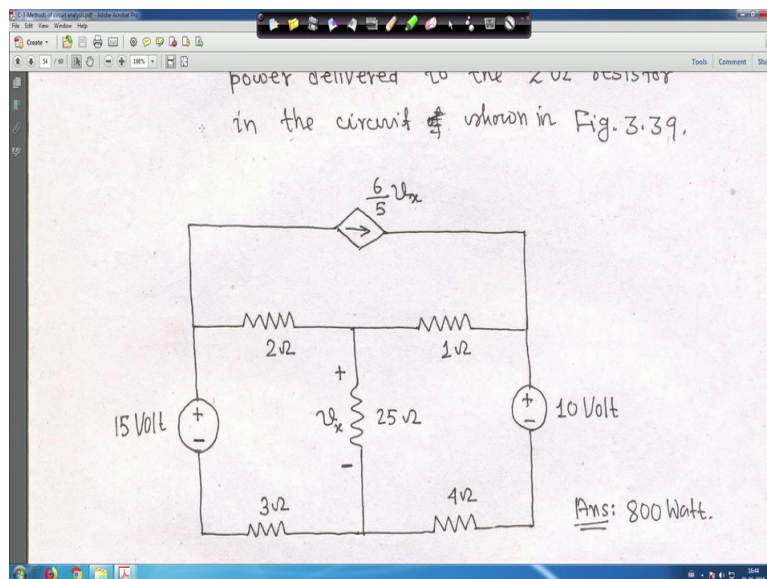 C-3-Methods of circuit analysis.pdf - Adobe Acrobat Pro
File Edit View Window Help
Create
54 / 60 198% Tools Comment
power delivered to the 2Ω resistor
in the circuit shown in Fig. 3.39.
6/5 Vx
2Ω 1Ω
+
15 Volt + − Vx 25Ω + − 10 Volt
−
3Ω 4Ω
Ans: 800 Watt.
16:44